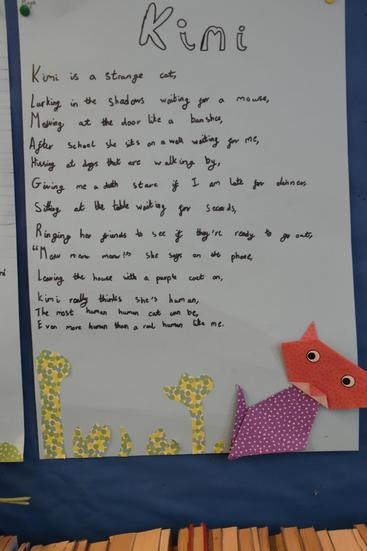 Kimi
Kimi is a strange cat,
Lurking in the shadows waiting for a mouse,
Meowing at the door like a banshee,
After school she sits on a wall waiting for me,
Hissing at dogs that are walking by,
Giving me a death stare if I am late for dinner,
Sitting at the table waiting for seconds,
Ringing her friends to see if they're ready to go out,
"Meow meow meow!" she says on the phone,
Leaving the house with a purple coat on,
Kimi really thinks she's human,
The most human human cat can be,
Even more human than a real human like me.